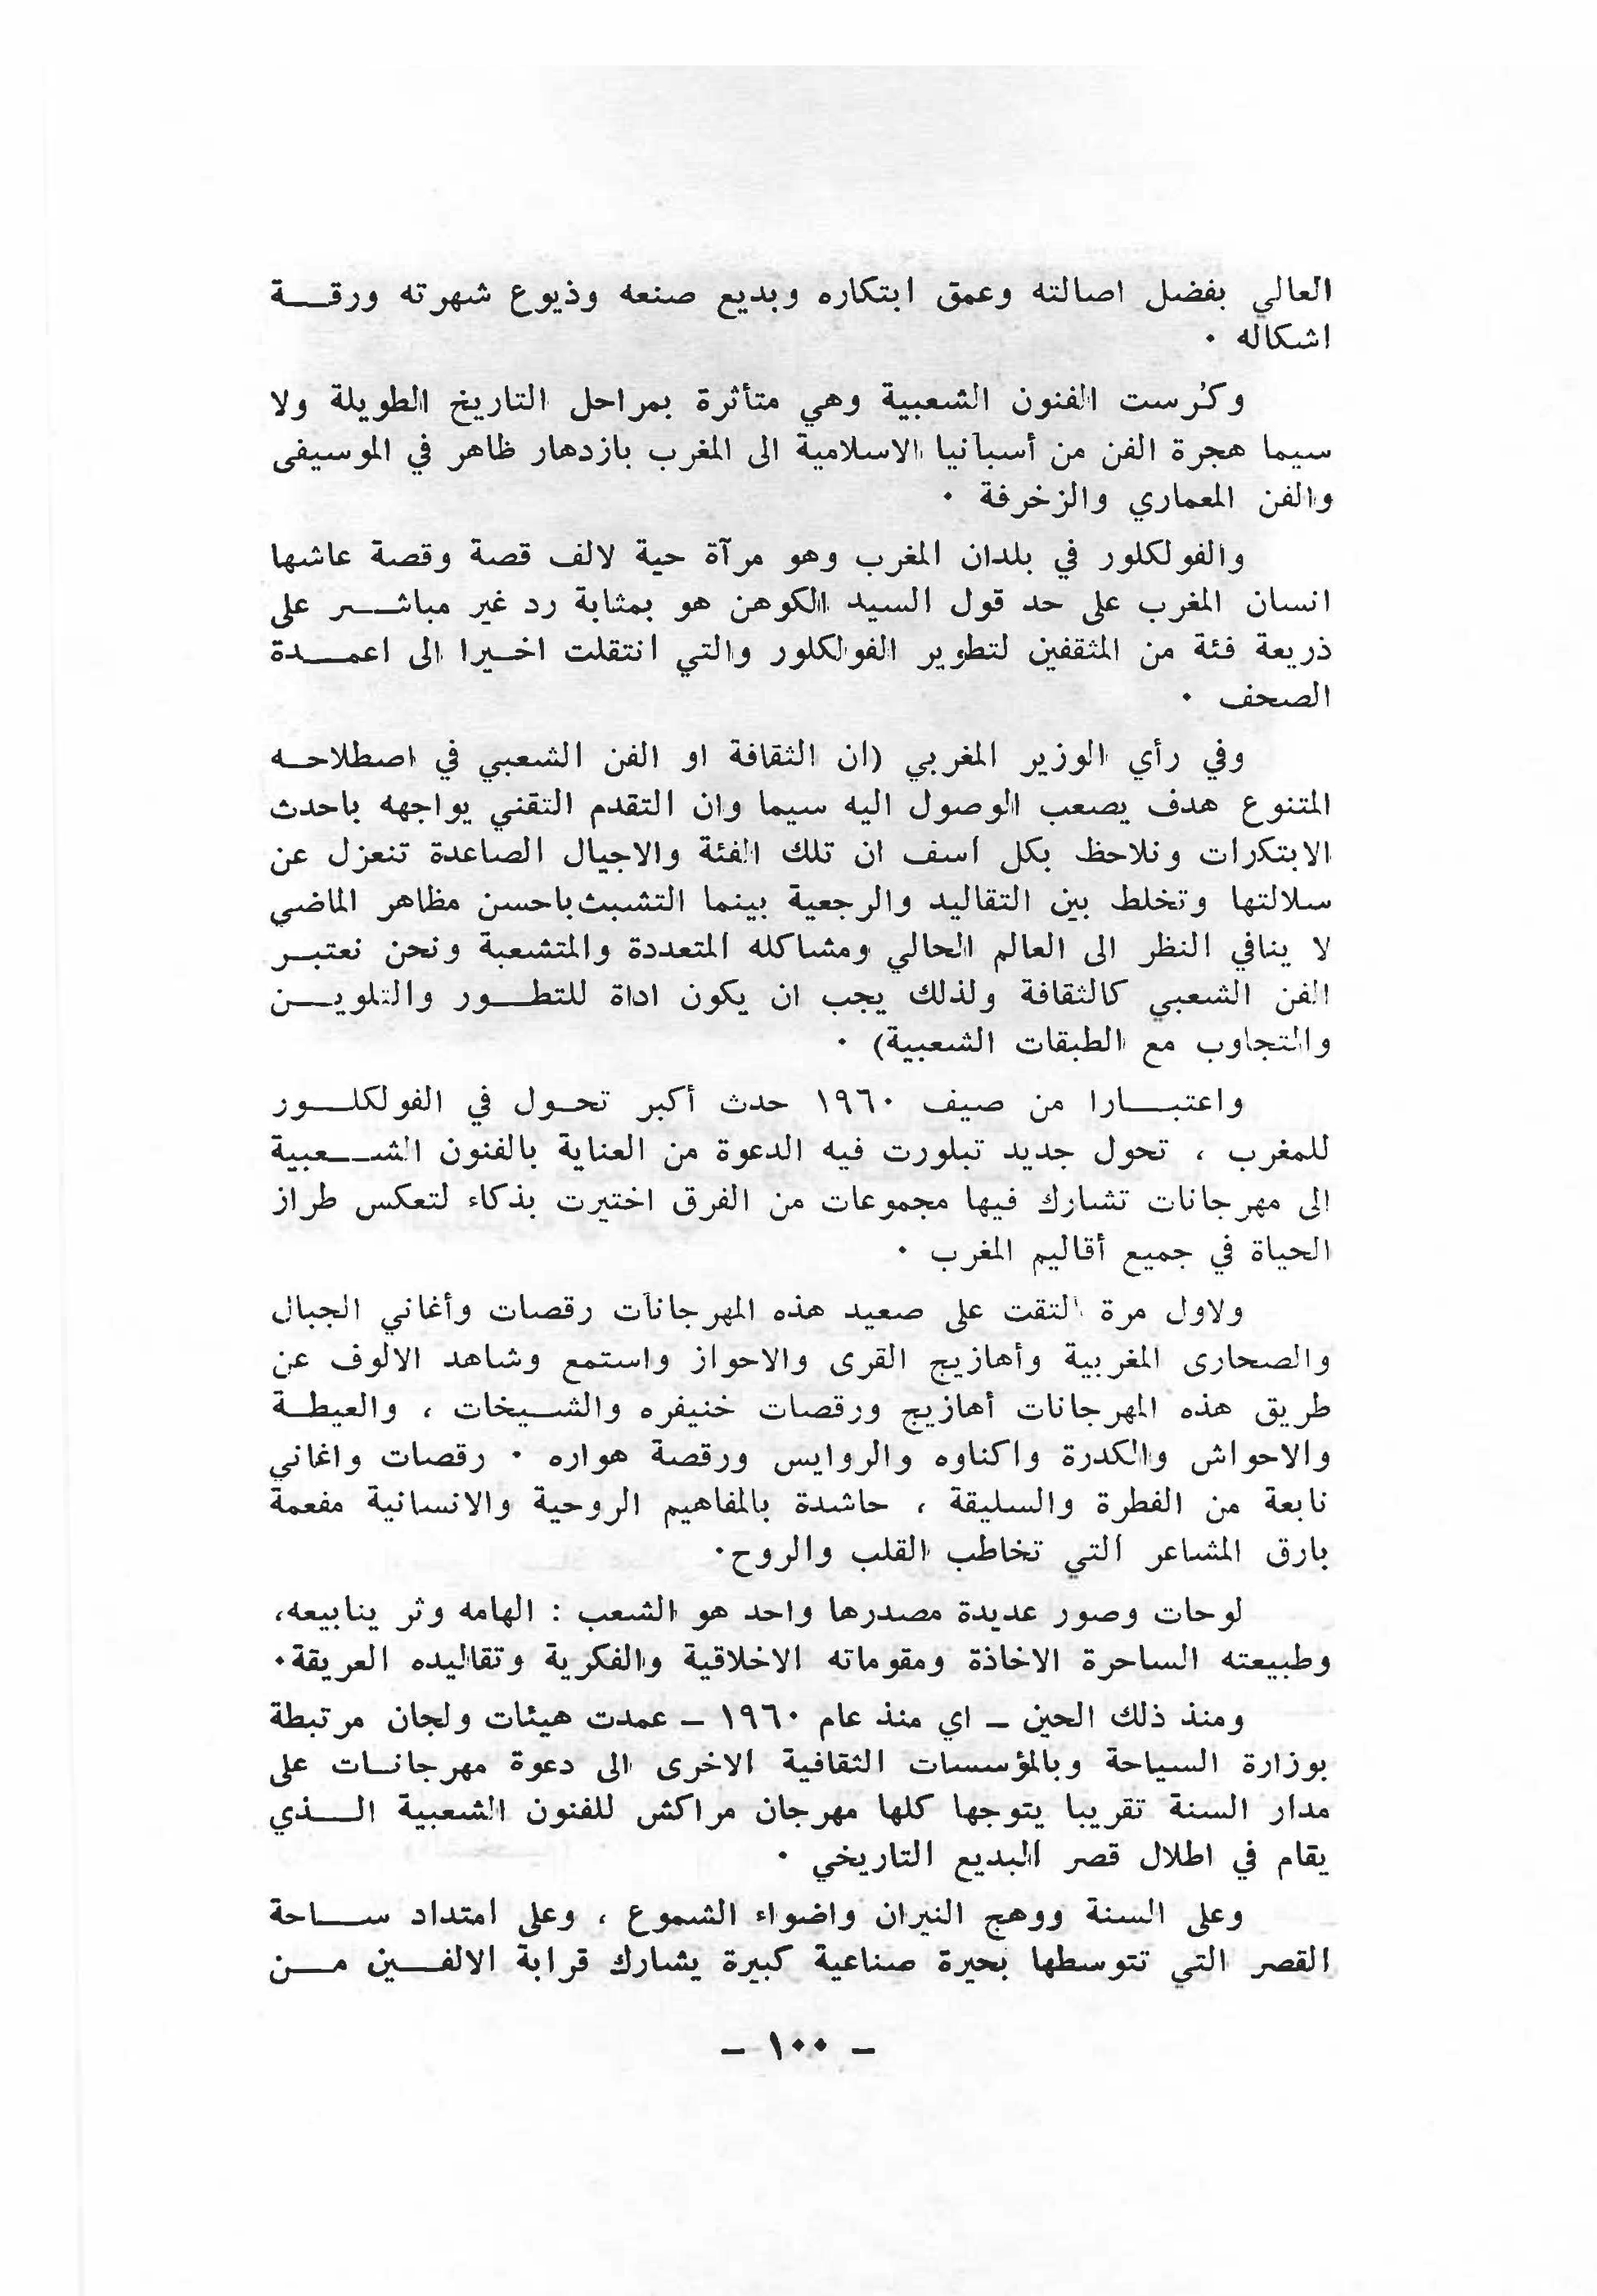 العالي بفضل اصالته وعمق ابتكاره وبديع صنعه وذيوع شهرته ورقـــة
اشكاله ٠
وكُرست الفنون الشعبية وهي متأثرة بمراحل التاريخ الطويلة ولا
سيما هجرة الفن من أسبانيا الاسلامية الى المغرب بازدهار ظاهر في الموسيفى
والفن المعماري والزخرفة ٠
والفولكلور في بلدان المغرب وهو مرآة حية لالف قصة وقصة عاشها
انسان المغرب على حد قول السيد الكوهن هو بمثابة رد غير مباشـــر على
ذريعة فئة من المثقفين لتطوير الفولكلور والتي انتقلت اخـيرا الى اعمـــدة
الصحف ٠
وفي رأي الوزير المغربي (ان الثقافة او الفن الشعبي في اصطلاحـه
المتنوع هدف يصعب الوصول اليه سيما وان التقدم التقني يواجهه باحدث
الابتكرات ونلاحظ بكل أسف ان تلك الفئة والاجيال الصاعدة تنعزل عن
سلالتها وتخلط بين التقاليد والرجعية بينما التشبث باحسن مظاهر الماضي
لا ينافي النظر الى العالم الحالي ومشاكله المتعددة والمتشعبة ونحن نعتبـر
الفن الشعبي كالثقافة ولذلك يجب ان يكون اداة للتطـــور والتلويـــن
والتجاوب مع الطبقات الشعبية) ٠
واعتبـــارا من صيف ١٩٦٠ حدث أكبر تحـول في الفولكلـــور
للمغرب ، تحول جديد تبلورت فيه الدعوة من العناية بالفنون الشـــعبية
الى مهرجانات تشارك فيها مجموعات من الفرق اختيرت بذكاء لتعكس طراز
الحياة في جميع أقاليم المغرب ٠
ولاول مرة التقت على صعيد هذه المهرجانات رقصات وأغاني الجبال
والصحارى المغربية وأهازيج القرى والاحواز واستمع وشاهد الالوف عن
طريق هذه المهرجانات أهازيج ورقصات خنيفره والشـيخات ، والعيطـة
والاحواش والكدرة واكناوه والروايس ورقصة هواره ٠ رقصات واغاني
نابعة من الفطرة والسليقة ، حاشدة بالمفاهيم الروحية والانسانية مفعمة
بارق المشاعر التي تخاطب القلب والروح٠
لوحات وصور عديدة مصدرها واحد هو الشعب : الهامه وثر ينابيعه،
وطبيعته الساحرة الاخاذة ومقوماته الاخلاقية والفكرية وتقاليده العريقة٠
ومنذ ذلك الحين ــ اي منذ عام ١٩٦٠ ــ عمدت هيئات ولجان مرتبطة
بوزارة السياحة وبالمؤسسات الثقافية الاخرى الى دعوة مهرجانـات على
مدار السنة تقريبا يتوجها كلها مهرجان مراكش للفنون الشعبية الـــذي
يقام في اطلال قصر البديع التاريخي ٠
وعلى السنة ووهج النيران واضواء الشموع ، وعلى امتداد ســـاحة
القصر التي تتوسطها بحيرة صناعية كبيرة يشارك قرابة الالفـــين مـــن
ــ ١٠٠ ــ